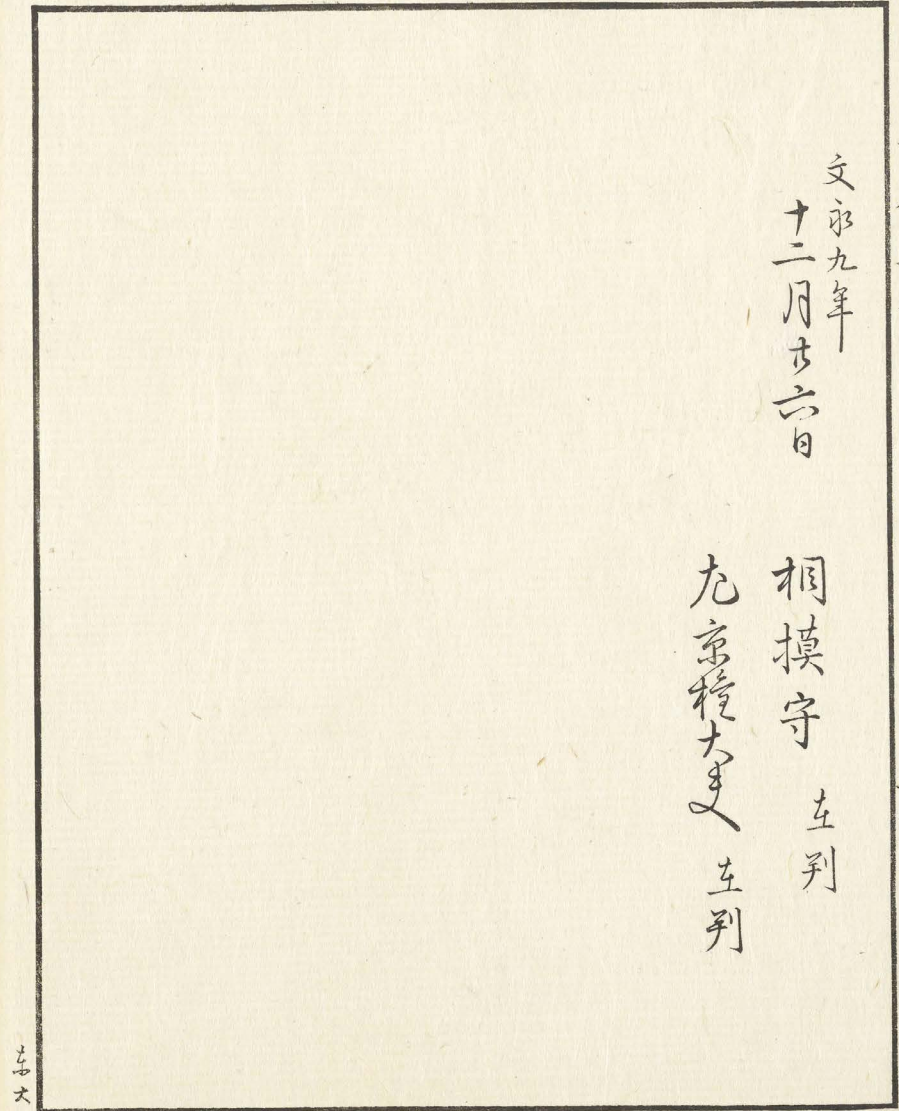 文永九年
十二月廿六日
相摸守 在判
左京権大夫 在判
東大